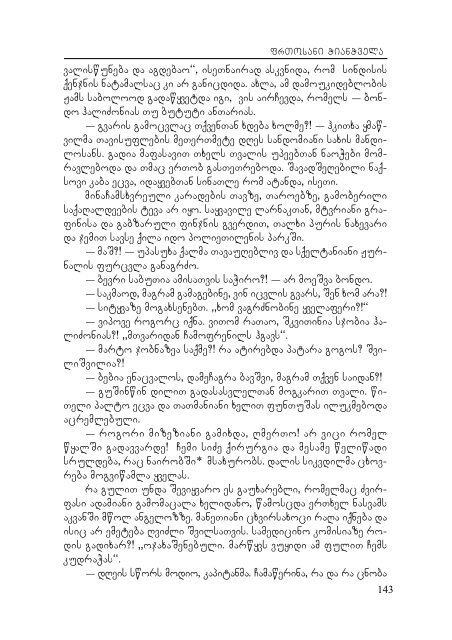 ფრთოსანი ჭიანჭველა
ვალისწუნება და აგდებაო“, ისეთნაირად ასკვნიდა, რომ სინდისის
ქენჯნის ნატამალსაც კი არ განიცდიდა. ახლა, ამ დამოუკიდებლობის
ჟამს საბოლოოდ გადაწყვეტდა იგი, ვის აირჩევდა, რომელს — ბონ-
დო ჰალიძონიას თუ ბუტუტი ანთარიას.
— გვარის გამოცვლაც თქვენთან ხდება ხოლმე?! — ჰკითხა ყმაწ-
ვილმა თავისუფლების მეთერთმეტე დღეს სანდომიანი სახის მანდი-
ლოსანს. გადია მაფასავით თხელს თვალის უპეებთან ნაოჭები მომ-
რავლებოდა და თმაც ერთობ გასთეთრებოდა. შავადშეღებილი ნაქ-
სოვი კაბა ეცვა, იდაყვებთან სინათლე რომ ატანდა, ისეთი.
მინაჩამსხვრეული კარადების თავზე, თაროებზე, გამობერილი
საქაღალდეების ტევა არ იყო. საყვავილე ლარნაკთან, მტვრიანი გრა-
ფინისა და გაბზარული ფინჯნის გვერდით, თალხი პურის ნახევარი
და ჯემით სავსე ქილა იდო პოლიეთილენის პარკში.
— მაშ?! — უპასუხა ქალმა თავაუღებლივ და სქელტანიანი ჟურ-
ნალის ფურცვლა განაგრძო.
— ბევრი საბუთია ამისათვის საჭირო?! — არ მოეშვა ბონდო.
— საკმაოდ, მაგრამ გამაგებინე, ვინ იცვლის გვარს, შენ ხომ არა?!
— სიტყვაზე მოგახსენებთ. „ხომ ვაგრძნობინე ყველაფერი?!“
— ვიპოვე როგორც იქნა. ვითომ რათაო, შკვითინია სჯობია ჰა-
ლიძონიას?! „მთვარიდან ჩამოფრენილს ჰგავს“.
— მარტო ჯობნაზეა საქმე?! რა ატირებდა პატარა გოგოს? შვი-
ლიშვილია?!
— ბებია ენაცვალოს, დამეჩაგრა ბავშვი, მაგრამ თქვენ საიდან?!
— გუშინწინ დილით გადასასვლელთან მოგკარით თვალი. წი-
თელი პალტო ეცვა და თათმანიანი ხელით ფუნთუშას ილუკმებოდა
აცრემლებული.
— როგორი მიზეზიანი გამიხდა, ღმერთო! არ ვიცი რომელ
წყალში გადავვარდე! ჩემი სიძე ქირურგია და მესამე წელიწადი
სრულდება, რაც ნაირობში* მსახურობს. დალის სიკვდილმა ცხოვ-
რება მოგვიწამლა ყველას.
რა გულით უნდა შევიყვარო ეს გაუხარებლი, რომელმაც ძვირ-
ფასი ადამიანი გამომაცალა ხელიდანო, წამოსცდა ერთხელ ნასვამს
აკვანში მწოლ ანგელოზზე. მანეთიანი ცხვირსახოცი რაღა იქნება და
ისიც არ ემეტება ღვიძლი შვილსათვის. სამედიცინო კომისიაზე რო-
დის გადიხარ?! „ოჯახაშენებული. მარწყვს ვუყიდი ამ ფულით ჩემს
კუდრაჭას“.
— დღეის სწორს მოდიო, კაპიტანმა. ჩამაწერინა, რა და რა ცნობა
143